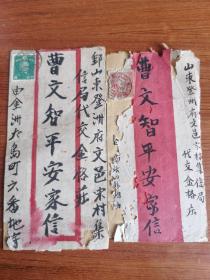 郵山東登洲府文邑宋村集
信局代交金格庄
曹文智平安家信
由金洲大島町六番地寄
山東登州府文邑宋村集信局
代交金格庄
曹文智平安家信